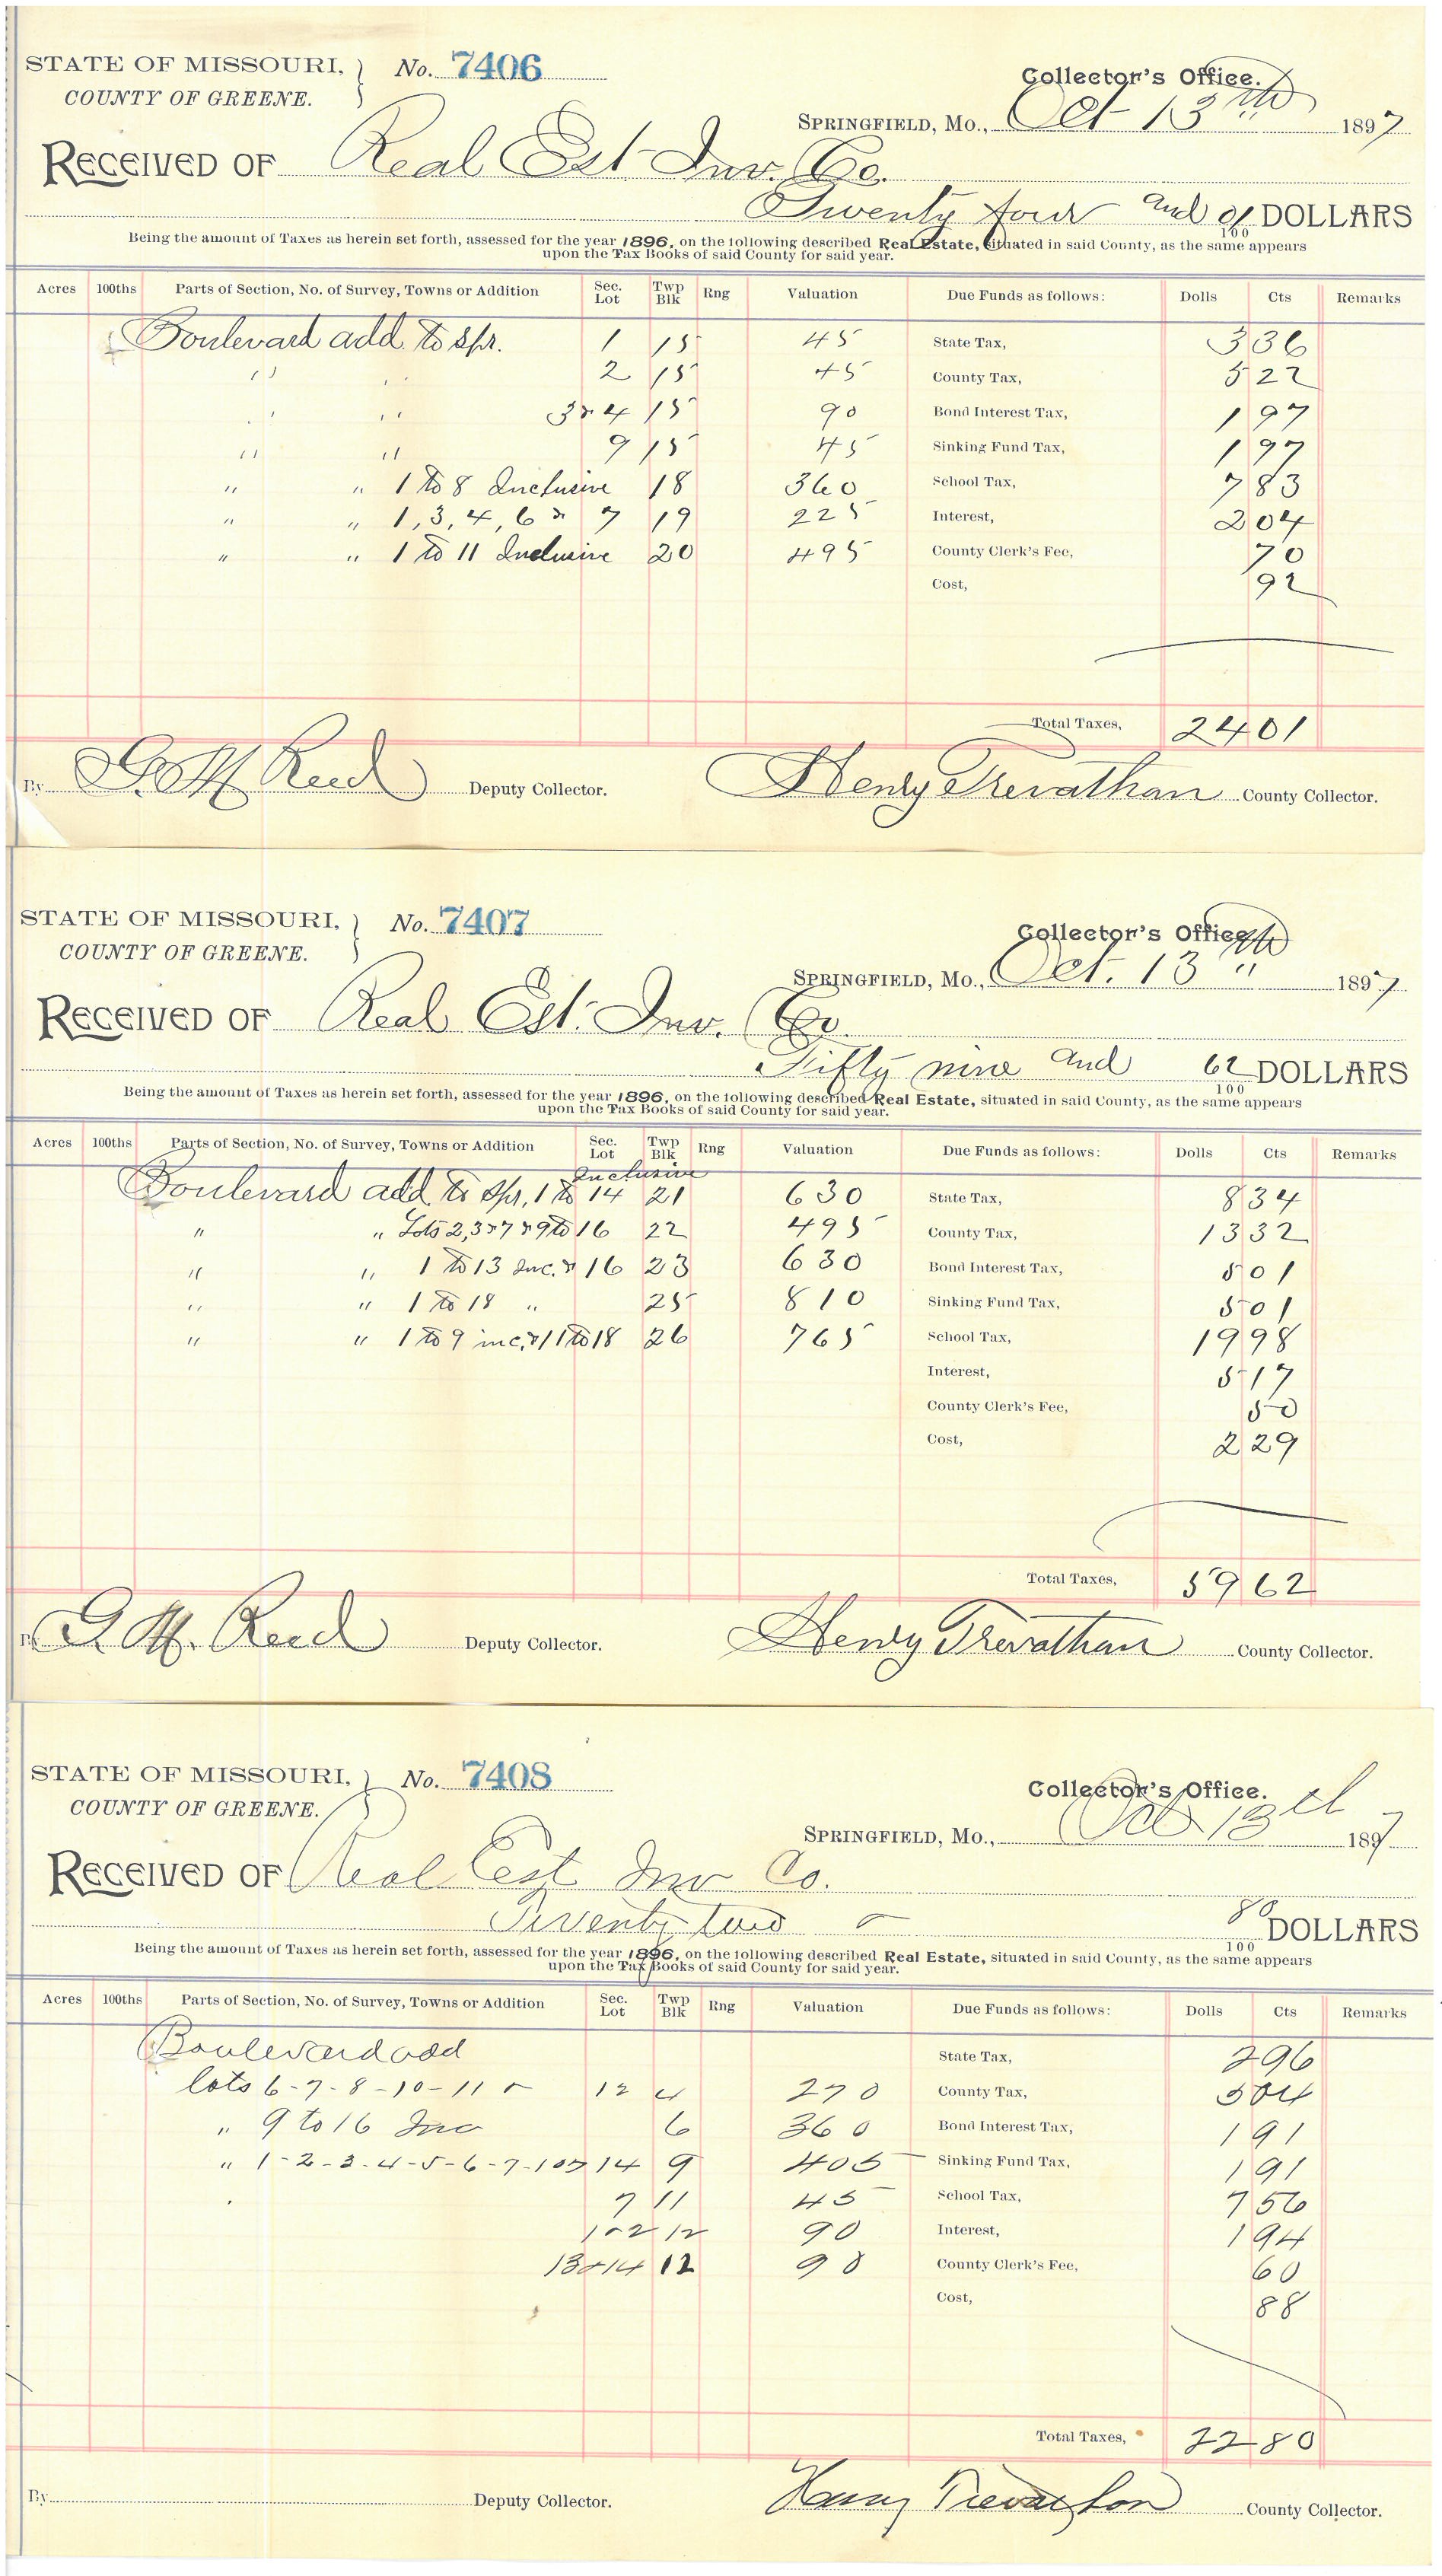 STATE OF MISSOURI, } No. 7406 Collector's Office.
COUNTY OF GREENE. SPRINGFIELD, Mo., Oct 13th 1897
RECEIVED OF Real Est. Inv. Co.
Twenty four and 01/100 DOLLARS
Being the amount of Taxes as herein set forth, assessed for the year 1896, on the following described Real Estate, situated in said County, as the same appears
upon the Tax Books of said County for said year.
Acres 100ths Parts of Section, No. of Survey, Towns or Addition Sec. Lot Twp Blk Rng Valuation Due Funds as follows: Dolls Cts Remarks
Boulevard add. to Spr. 1 15 45 State Tax, 3 36
" " 2 15 45 County Tax, 5 22
" " 3 & 4 15 90 Bond Interest Tax, 1 97
" " 9 15 45 Sinking Fund Tax, 1 97
" " 1 to 8 Inclusive 18 360 School Tax, 7 83
" " 1, 3, 4, 6 & 7 19 225 Interest, 2 04
" " 1 to 11 Inclusive 20 495 County Clerk's Fee, 70
Cost, 92
Total Taxes, 24 01
By G. M. Reed Deputy Collector. Henry Trevathan County Collector.
STATE OF MISSOURI, } No. 7407 Collector's Office.
COUNTY OF GREENE. SPRINGFIELD, Mo., Oct. 13th " 1897
RECEIVED OF Real Est. Inv. Co.
Fifty nine and 62/100 DOLLARS
Being the amount of Taxes as herein set forth, assessed for the year 1896, on the following described Real Estate, situated in said County, as the same appears
upon the Tax Books of said County for said year.
Acres 100ths Parts of Section, No. of Survey, Towns or Addition Sec. Lot Twp Blk Rng Valuation Due Funds as follows: Dolls Cts Remarks
Inclusive
Boulevard add. to Spr. 1 to 14 21 630 State Tax, 8 34
" " Lots 2, 3 & 7 & 9 to 16 22 495 County Tax, 13 32
" " 1 to 13 Inc. & 16 23 630 Bond Interest Tax, 5 01
" " 1 to 18 " 25 810 Sinking Fund Tax, 5 01
" " 1 to 9 inc, & 11 to 18 26 765 School Tax, 19 98
Interest, 5 17
County Clerk's Fee, 50
Cost, 2 29
Total Taxes, 59 62
By G. M. Reed Deputy Collector. Henry Trevathan County Collector.
STATE OF MISSOURI, } No. 7408 Collector's Office.
COUNTY OF GREENE. SPRINGFIELD, Mo., Oct 13th 1897
RECEIVED OF Real Est Inv Co.
Twenty two 80/100 DOLLARS
Being the amount of Taxes as herein set forth, assessed for the year 1896, on the following described Real Estate, situated in said County, as the same appears
upon the Tax Books of said County for said year.
Acres 100ths Parts of Section, No. of Survey, Towns or Addition Sec. Lot Twp Blk Rng Valuation Due Funds as follows: Dolls Cts Remarks
Boulevard add State Tax, 2 96
lots 6-7-8-10-11 & 12 4 270 County Tax, 5 04
" 9 to 16 Inc 6 360 Bond Interest Tax, 1 91
" 1-2-3-4-5-6-7-10 & 14 9 405 Sinking Fund Tax, 1 91
7 11 45 School Tax, 7 56
1 & 2 12 90 Interest, 1 94
13 & 14 12 90 County Clerk's Fee, 60
Cost, 88
Total Taxes, 22 80
By Deputy Collector. Henry Trevathan County Collector.